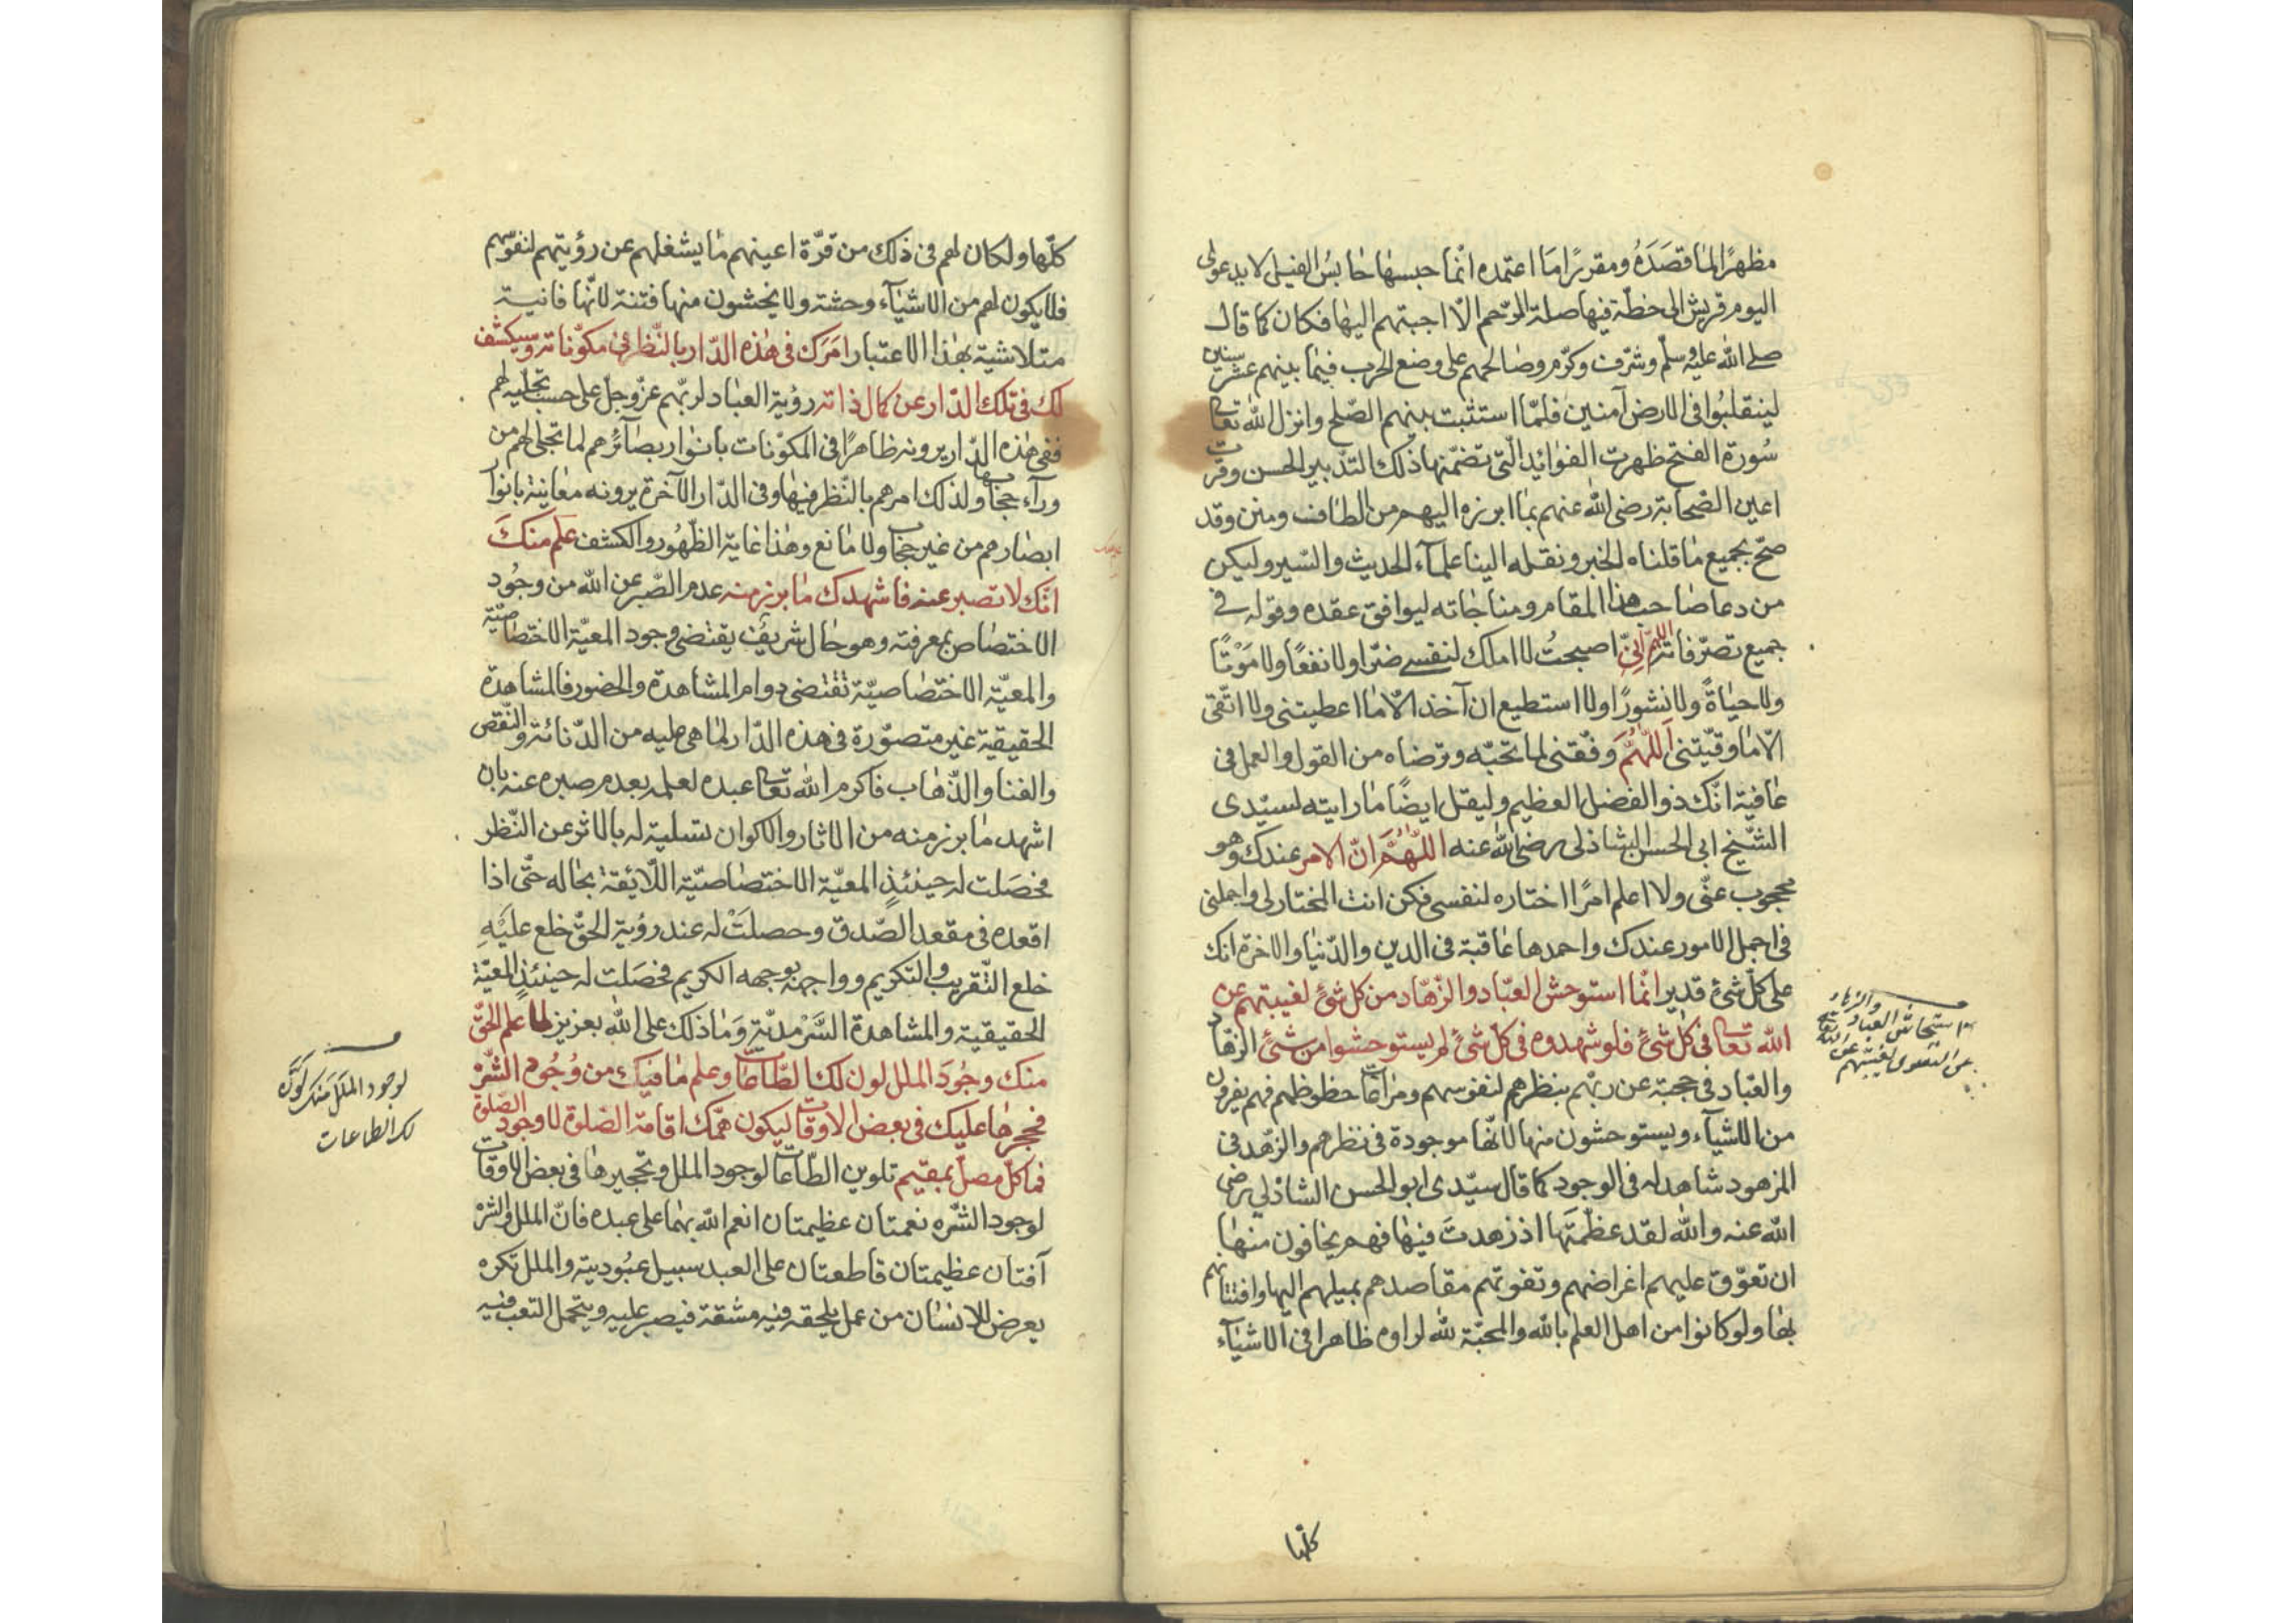 مظهرًا لما قصَدَهُ ومقررًا ما اعتمده انّما حبسها حابس الفيل لا يدعونى
اليوم قريش الى خطّة فيها صلة الرّحم الّا اجبتهم اليها فكان كما قال
صلى الله عليه وسلّم وشرّف وكرّم وصالحهم على وضع الحرب فيما بينهم عشر سنين
لينقلبُوا فى الارض آمنين فلمّا استثبت بينهم الصّلح وانزل الله تعالى
سُورة الفتح ظهرت الفوائد الّتى تضمّنها ذلك التّدبير الحسن وقرّت
اعين الصّحابة رضى الله عنهم بما ابرزه اليهم من الطاف ومنن وقد
صحّ بجميع ما قلناه الخبر ونقله الينا علمآء الحديث والسّير وليكن
من دعا صاحب هذا المقام ومناجاته ليوافق عقده وقوله فى
جميع تصرّفاته اللهم انّى اصبحتُ لا املك لنفسى ضرّا ولا نفعًا ولا مَوْتًا
ولا حياةً ولا نشورًا ولا استطيع ان آخذ الّا ما اعطيتنى ولا اتّقى
الّا ما وقّيتنى اللّهُمَّ وفّقنى لما تحبّه وترضاه من القول والعمل فى
عافية انّك ذو الفضل العظيم وليقل ايضًا ما رايته لسيّدى
الشّيخ ابى الحسن الشاذلى رضى الله عنه اللّهُمَّ انّ الامر عندك وهو
محجوب عنّى ولا اعلم امرًا اختاره لنفسى فكن انت المختار لى واحملنى
فى اجمل الامور عندك واحمدها عاقبة فى الدين والدّنيا والاخرة انك
على كلّ شئ قدير انّما استوحش العبّاد والزهّاد من كل شئ لغيبتهم عن
الله تعالى فى كل شئ فلو شهدوه فى كل شئ لم يستوحشوا من شئ الزهّاد
والعبّاد فى حجبة عن ربّهم بنظرهم لنفوسهم ومراعات حظوظهم فهم يفرون
من الاشيآء ويستوحشون منها لانّها موجودة فى نظرهم والزّهد فى
المزهود شاهد له فى الوجود كما قال سيّدى ابو الحسن الشاذلى رضى
الله عنه والله لقد عظّمتَها اذ زهدتَ فيها فهم يخافون منها
ان تعوّق عليهم اغراضهم وتفوتهم مقاصدهم بميلهم اليها وافتتانهم
بها ولو كانوا من اهل العلم بالله والمحبّة لله لراوه ظاهرا فى الاشيآء
استيحاش العباد والزهاد
لغيبتهم عن الله
كلّها
كلّها ولكان لهم فى ذلك من قرّة اعينهم ما يشغلهم عن رؤيتهم لنفوسهم
فلا يكون لهم من الاشيآء وحشة ولا يخشون منها فتنة لانّها فانية
متلاشية بهذا الاعتبار امَرَك فى هذه الدّار بالنّظر فى مكوّناته وسيكشف
لك فى تلك الدّار عن كمال ذاته رؤية العباد لربّهم عزّ وجلّ على حسب تجلّيه لهم
ففى هذه الدّار يرونه ظاهرًا فى المكوّنات بانوار بصآئرهم لما تجلى لهم من
ورآء حجابها ولذلك امرهم بالنّظر فيها وفى الدّار الآخرة يرونه معاينة بانوار
ابصارهم من غير حجاب ولا مانع وهذا غاية الظّهُور والكشف علم منكَ
انّك لا تصبر عنه فاشهدك ما برز منه عدم الصّبر عن الله من وجُود
الاختصاص بمعرفته وهو حال شريف يقتضى وجود المعيّة الاختصاصيّة
والمعيّة الاختصاصيّة تقتضى دوام المشاهدة والحضور فالمشاهدة
الحقيقية غير متصوّرة فى هذه الدّار لما هى عليه من الدّنائة والنّقص
والفنا والذّهاب فاكرم الله تعالى عبده لعلمه بعدم صبره عنه بان
اشهد ما برز منه من الاثار والاكوان تسلية له بالاثر عن النّظر
فحصَلت له حينئذٍ المعيّة الاختصاصيّة اللّائقة بحاله حتّى اذا
اقعده فى مقعد الصّدق وحصلَتْ له عند رؤية الحقّ خلع عليْهِ
خلع التّقريب والتكريم وواجهه بوجهه الكريم فحصَلت له حينئذٍ المعيّة
الحقيقية والمشاهدة السَّرْمديّة وَمَا ذلك على الله بعزيز لما علم الحقّ
منك وجُودَ الملل لون لك الطّاعات وعلم ما فيك من وُجُود الشَّرَه
فحجرها عليك فى بعض الاوقات ليكون همّك اقامة الصلوة لا وجود الصّلوة
فما كلّ مصلّ بمقيم تلوين الطّاعات لوجود الملل وتحجيرها فى بعض الاوقات
لوجود الشّره نعمتان عظيمتان انعم الله بهما على عبده فانّ الملل والشّره
آفتان عظيمتان قاطعتان على العبد سبيل عبُوديته والملل تكره
يعرض للانسان من عمل يلحقه فيه مشقة فيصبر عليه ويتحمل التعب فيه
لوجود الملل منك لوّن
لك الطاعات